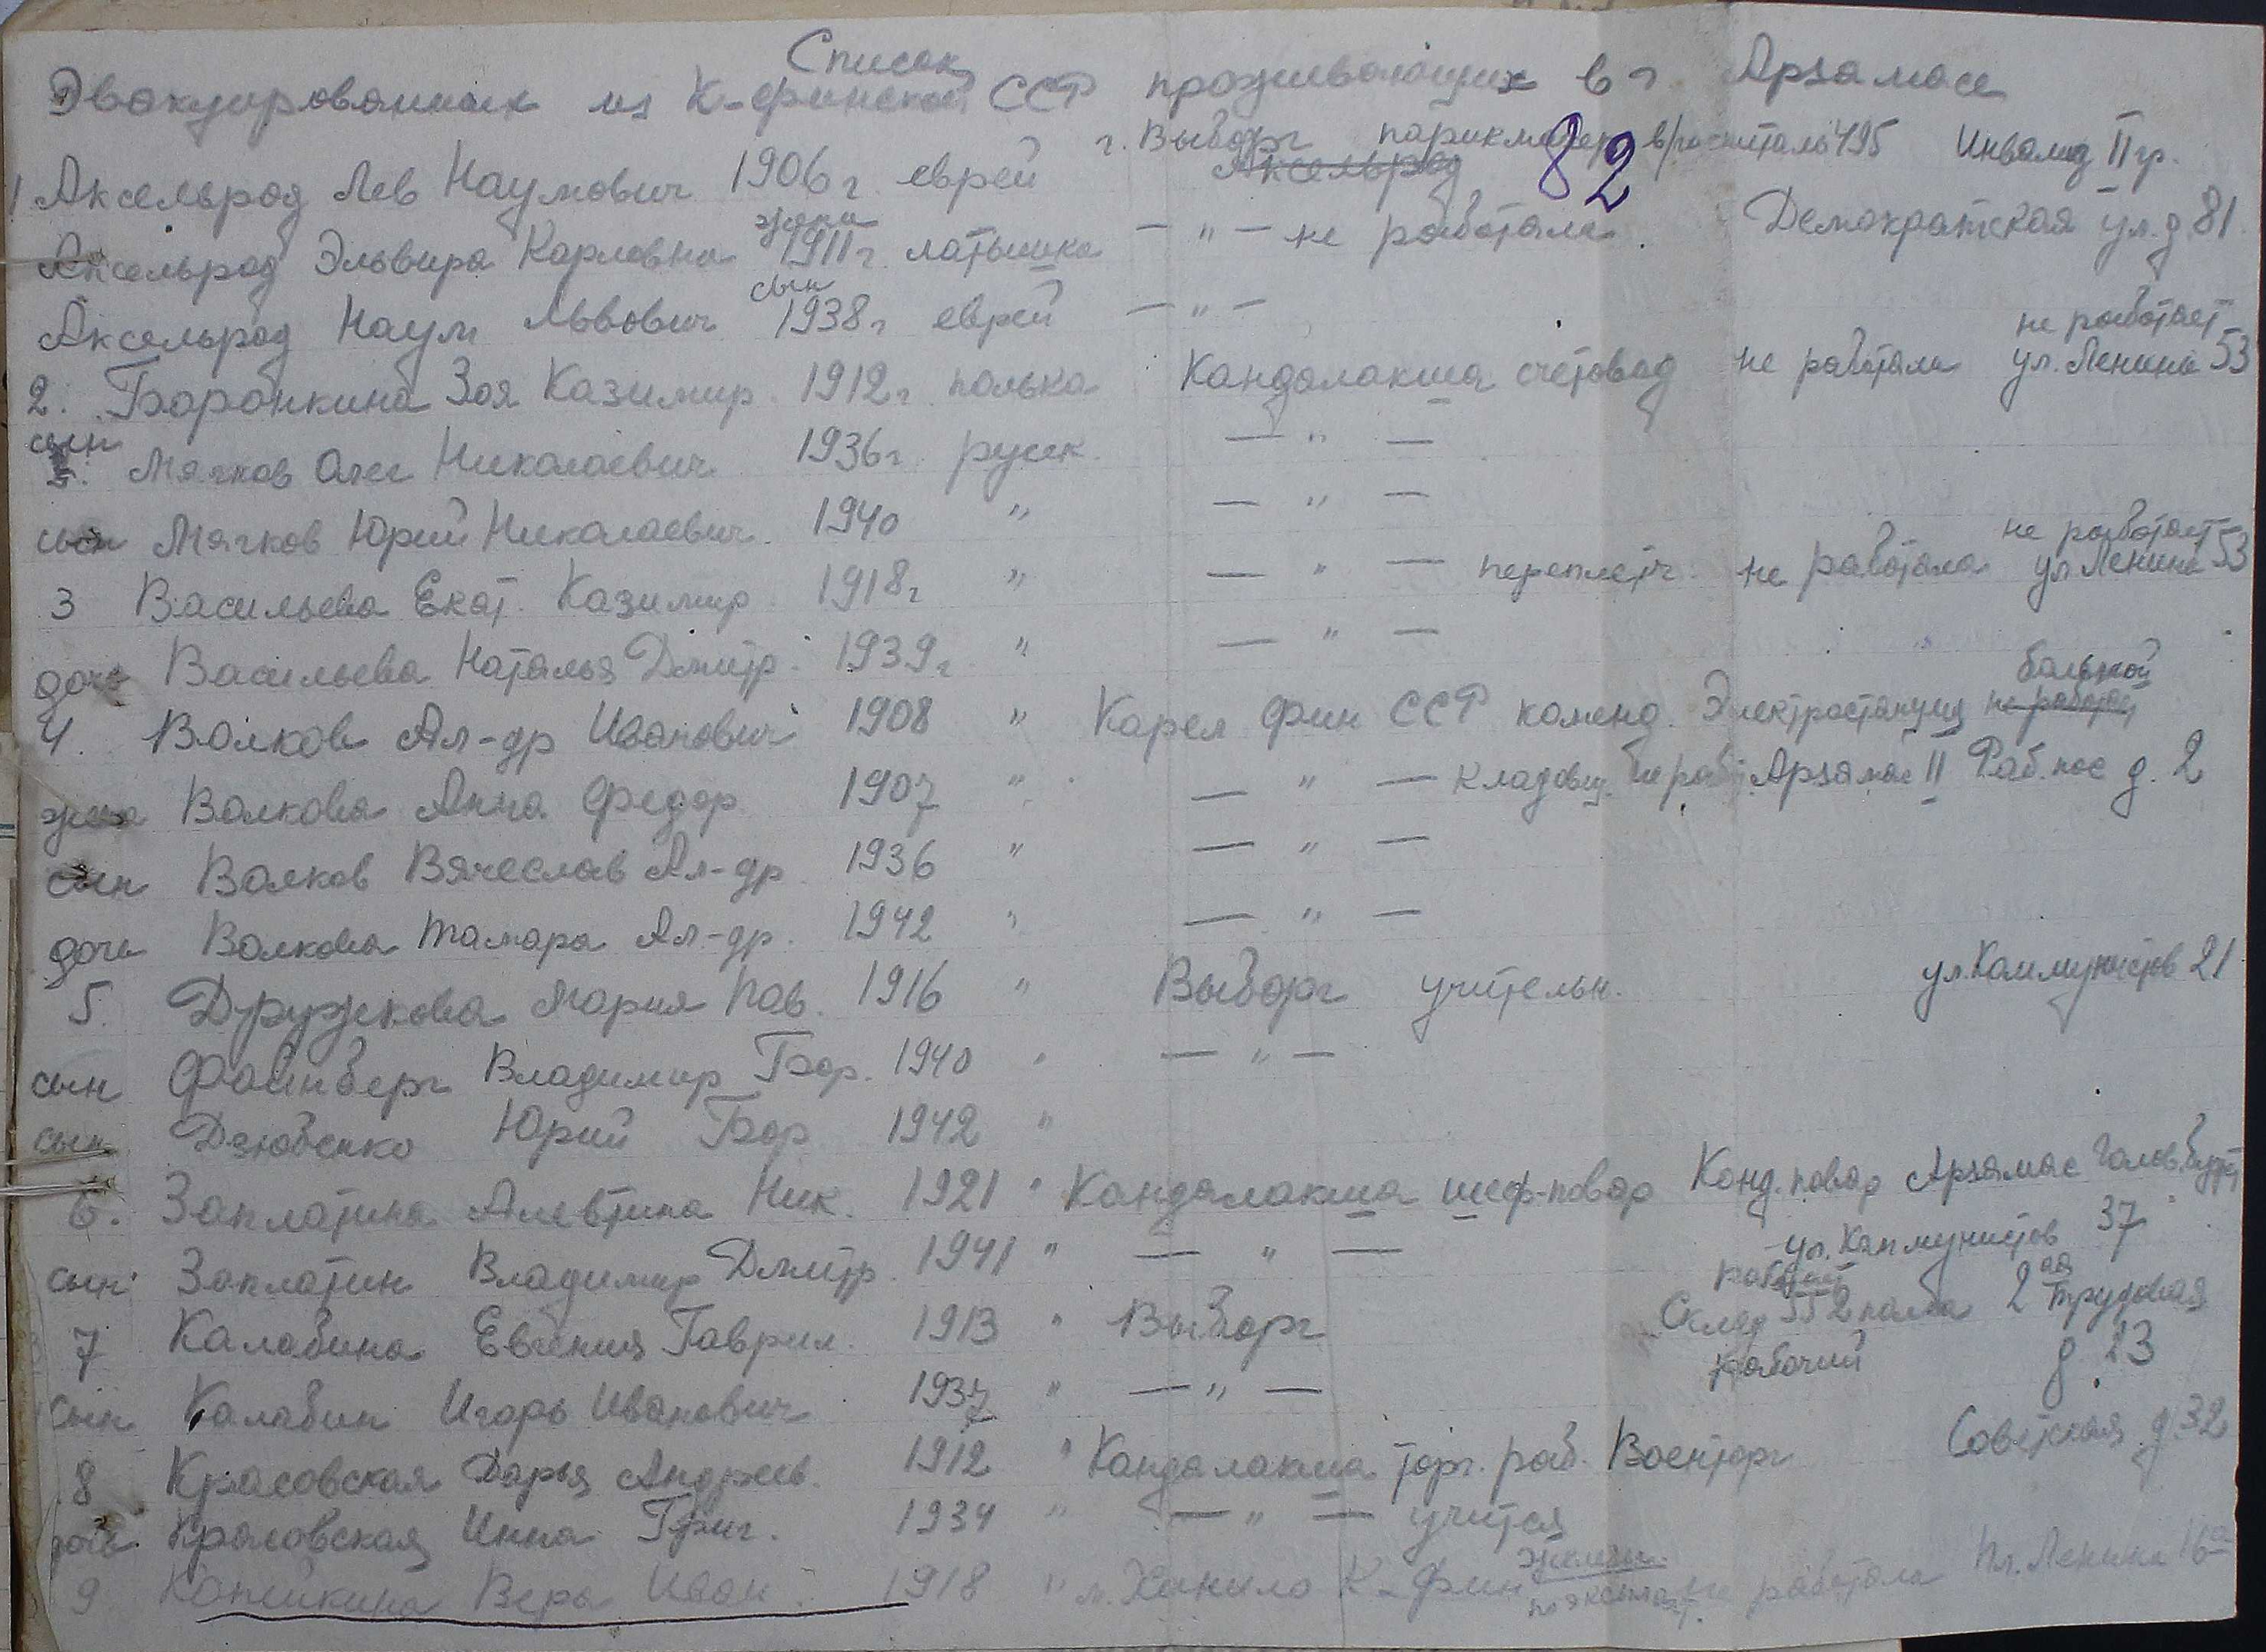 Список
Эвакуированных из К-финской ССР проживающих в г. Арзамасе
82
г. Выборг парикмахер в/госпиталь 495 Инвалид II гр.
1 Аксельрод Лев Наумович 1906 г. еврей Аксельрод
жена
Аксельрод Эльвира Карловна 1911 г. латышка — " — не работала. Демократская ул. д 81.
сын
Аксельрод Наум Львович 1938 г. еврей — " —
не работает
2. Баранкина Зоя Казимир. 1912 г. полька Кандалакша счетовод не работала ул. Ленина 53
сын Мягков Олег Николаевич 1936 г. русск. — " —
сын Мягков Юрий Николаевич. 1940 " — " —
не работает
3 Васильева Екат. Казимир. 1918 г. " — " — переплетч. не работала ул Ленина 53
дочь Васильева Наталья Дмитр. 1939 г. " — " —
больной
4. Волков Ал-др Иванович 1908 " Карел Фин ССР коменд. Электростанция не работает
жена Волкова Анна Федор. 1907 " — " — кладовщ. не раб. Арзамас II Раб. пос д. 2
сын Волков Вячеслав Ал-др. 1936 " — " —
дочь Волкова Тамара Ал-др. 1942 " — " —
5. Дружкова Мария Пав. 1916 " Выборг учительн. ул. Коммунистов 21
сын Файнберг Владимир Бор. 1940 " — " —
сын Дзюбенко Юрий Бор 1942 "
6. Заплатина Алевтина Ник. 1921 " Кандалакша шеф-повар Конд. повар Арзамас
ул. Коммунистов 37
сын Заплатин Владимир Дмитр. 1941 " — " —
7 Калабина Евгения Гаврил. 1913 " Выборг Склад 552 2 ая Трудовая
рабочий д 23
сын Калабин Игорь Иванович 1937 " — " —
8 Красовская Дарья Андреев. 1912 " Кандалакша торг. раб. Военторг Советская д 32
дочь Красовская Инна Григ. 1934 " — " — учится
9 Копейкина Вера Иван. 1918 " К-Фин не работала пл. Ленина 16